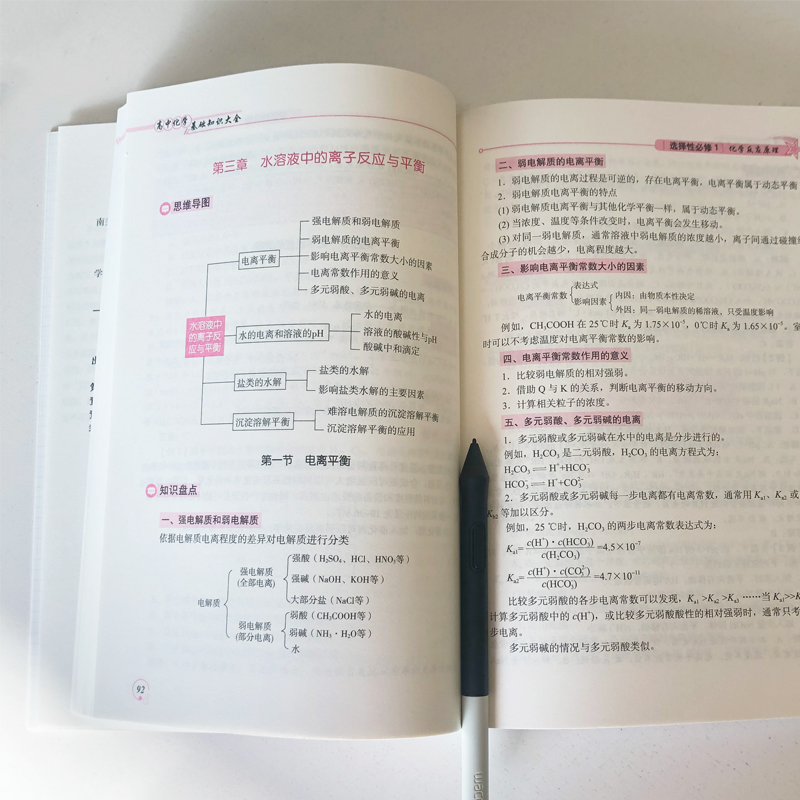 高中化学
基础知识大全
第三章 水溶液中的离子反应与平衡
思维导图
水溶液中
的离子反
应与平衡
电离平衡
强电解质和弱电解质
弱电解质的电离平衡
影响电离平衡常数大小的因素
电离常数作用的意义
多元弱酸、多元弱碱的电离
水的电离和溶液的pH
水的电离
溶液的酸碱性与pH
酸碱中和滴定
盐类的水解
盐类的水解
影响盐类水解的主要因素
沉淀溶解平衡
难溶电解质的沉淀溶解平衡
沉淀溶解平衡的应用
第一节 电离平衡
知识盘点
一、强电解质和弱电解质
依据电解质电离程度的差异对电解质进行分类
电解质
强电解质
(全部电离)
强酸（H₂SO₄、HCl、HNO₃等）
强碱（NaOH、KOH等）
大部分盐（NaCl等）
弱电解质
(部分电离)
弱酸（CH₃COOH等）
弱碱（NH₃·H₂O等）
水
92
选择性必修1 化学反应原理
二、弱电解质的电离平衡
1．弱电解质的电离过程是可逆的，存在电离平衡，电离平衡属于动态平衡
2．弱电解质电离平衡的特点
(1) 弱电解质电离平衡与其他化学平衡一样，属于动态平衡。
(2) 当浓度、温度等条件改变时，电离平衡会发生移动。
(3) 对同一弱电解质，通常溶液中弱电解质的浓度越小，离子间通过碰撞
合成分子的机会越少，电离程度越大。
三、影响电离平衡常数大小的因素
电离平衡常数
表达式
影响因素
内因：由物质本性决定
外因：同一弱电解质的稀溶液，只受温度影响
例如，CH₃COOH 在 25℃时 Kₐ 为 1.75×10⁻⁵，0℃时 Kₐ 为 1.65×10⁻⁵。室
时可以不考虑温度对电离平衡常数的影响。
四、电离平衡常数作用的意义
1．比较弱电解质的相对强弱。
2．借助 Q 与 K 的关系，判断电离平衡的移动方向。
3．计算相关粒子的浓度。
五、多元弱酸、多元弱碱的电离
1．多元弱酸或多元弱碱在水中的电离是分步进行的。
例如，H₂CO₃ 是二元弱酸，H₂CO₃ 的电离方程式为：
H₂CO₃ ⇌ H⁺+HCO₃⁻
HCO₃⁻ ⇌ H⁺+CO₃²⁻
2．多元弱酸或多元弱碱每一步电离都有电离常数，通常用 Kₐ₁、Kₐ₂ 或
Kb₂ 等加以区分。
例如，25 ℃时，H₂CO₃ 的两步电离常数表达式为：
Kₐ₁= c(H⁺)·c(HCO₃⁻) / c(H₂CO₃) =4.5×10⁻⁷
Kₐ₂= c(H⁺)·c(CO₃²⁻) / c(HCO₃⁻) =4.7×10⁻¹¹
比较多元弱酸的各步电离常数可以发现，Kₐ₁ >Kₐ₂ >Kₐ₃ ……当 Kₐ₁>>K
计算多元弱酸中的 c(H⁺)，或比较多元弱酸酸性的相对强弱时，通常只考
步电离。
多元弱碱的情况与多元弱酸类似。